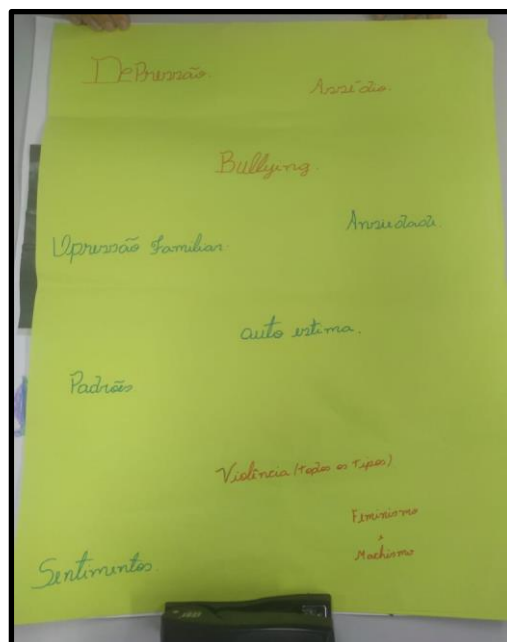 DePressão
Assédio
Bullying.
Ansiedade
Opressão Familiar
auto estima.
Padrões
Violência (todos os tipos)
Feminismo
Machismo
Sentimentos.